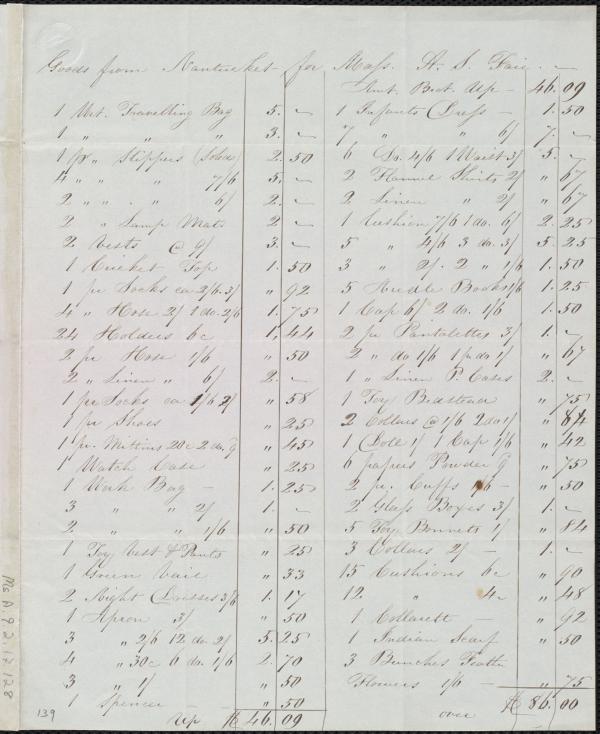 Goods from Nantucket for Mass. A. S. Fair. —
1 Wst. Travelling Bag 5. —
1 " " " 3. —
1 pr " Slippers (Soled) 2. 50
4 " " 7/6 5. —
2 " " . " 6/ 2. —
2 " Lamp Mats 2 —
2 Vests @ 9/ 3. —
1 Cricket Top 1. 50
1 pr Socks ea 2/6. 3/ " 92
4 " Hose 2/ 1 do. 2/6 1. 75
24 Holders 6c 1, 44
2 pr Hose 1/6 " 50
2 " Linen " 6/ 2. —
1 pr Socks ea 1/6 2/ " 58
1 pr Shoes " 25
1 pr. Mittens 20c 2 do. 9 " 45
1 Watch Case " 25
1 Work Bag — 1. 25
3 " " 2/ 1. —
2. " " 1/6 " 50
1 Toy Vest & Pants " 25
1 Green Vail " 33
2 Night Dresses 3/6 1. 17
1 Apron 3/ " 50
3 " 2/6 12 do. 2/ 5. 25
4 " 30c 6 do. 1/6 2. 70
3 " 1/ " 50
1 Spencer — " 50
Up $ 46. 09
Amt. Brot. Up — 46. 09
1 Infants Dress — 1. 50
7 " " 6/ 7. —
6 Do. 4/6 1 Waist 3/ 5. —
2 Flannel Shirts 2/ " 67
2 Linen " 2/ " 67
1 Cushion 7/6 1 do. 6/ 2. 25
5 " 4/6 3 do. 3/ 5. 25
3 " 2/. 2 " 1/6 1. 50
5 Needle Books 1/6 1. 25
1 Cap 6/ 2 do. 1/6 1. 50
2 pr Pantalettes 3/ 1. —
2 " do 1/6 1 pr do 1/ " 67
1 " Linen P. Cases 2. —
1 Toy Bedstead " 75
2 Collars @ 1/6 2 do 1/ " 84
1 Dole 1/ 1 Cap 1/6 " 42
6 papers Powder 9 " 75
2 pr. Cuffs 1/6 — " 50
2 Glass Boxes 3/ 1. —
5 Toy Bonnets 1/ " 84
3 Collars 2/ — 1. —
15 Cushions 6c " 90
12. " 4c " 48
1 Collarett — " 92
1 Indian Scarf " 50
3 Bunches Feather
Flowers 1/6 — " 75
over $ 86. 00
139
Ms A.9.2.17.128